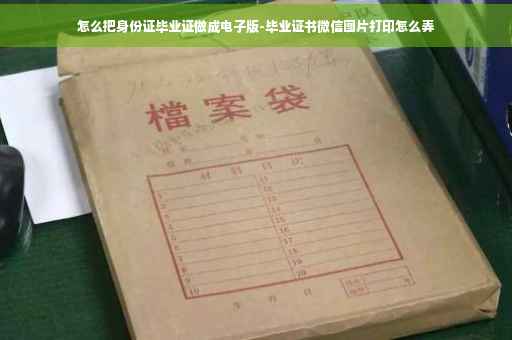 怎么把身份证毕业证做成电子版-毕业证书微信图片打印怎么弄
檔案袋
材料目次
1 11
2 12
3 13
4 14
5 15
6 16
7 17
8 18
9 19
10 20
年 月 日